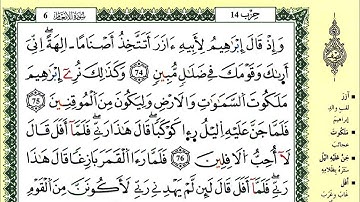 حزب 14
سورة الأنعام
6
وَإِذْ قَالَ إِبْرَٰهِيمُ لِأَبِيهِ ءَازَرَ أَتَتَّخِذُ أَصْنَامًا ءَالِهَةً إِنِّيَ
أَر۪ىٰكَ وَقَوْمَكَ فِي ضَلَٰلٖ مُّبِينٖ 74 وَكَذَٰلِكَ نُرِےٓ إِبْرَٰهِيمَ
مَلَكُوتَ اَ۬لسَّمَٰوَٰتِ وَالَارْضِ وَلِيَكُونَ مِنَ اَ۬لْمُوقِنِينَ 75
فَلَمَّا جَنَّ عَلَيْهِ اِ۬ليْلُ رَءٖا كَوْكَباٗ قَالَ هَٰذَا رَبِّے فَلَمَّآ أَفَلَ قَالَ
لَآ أُحِبُّ اُ۬لَافِلِينَ 76 فَلَمَّا رَءَا اَ۬لْقَمَرَ بَازِغاٗ قَالَ هَٰذَا
رَبِّے فَلَمَّآ أَفَلَ قَالَ لَئِن لَّمْ يَهْدِنِے رَبِّے لَأَكُونَنَّ مِنَ اَ۬لْقَوْمِ
ءازر
لقب والد
إبراهيم
ملكوت
عجائب
جن عليه الليل
ستره بظلامه
أفل
غاب وغرب